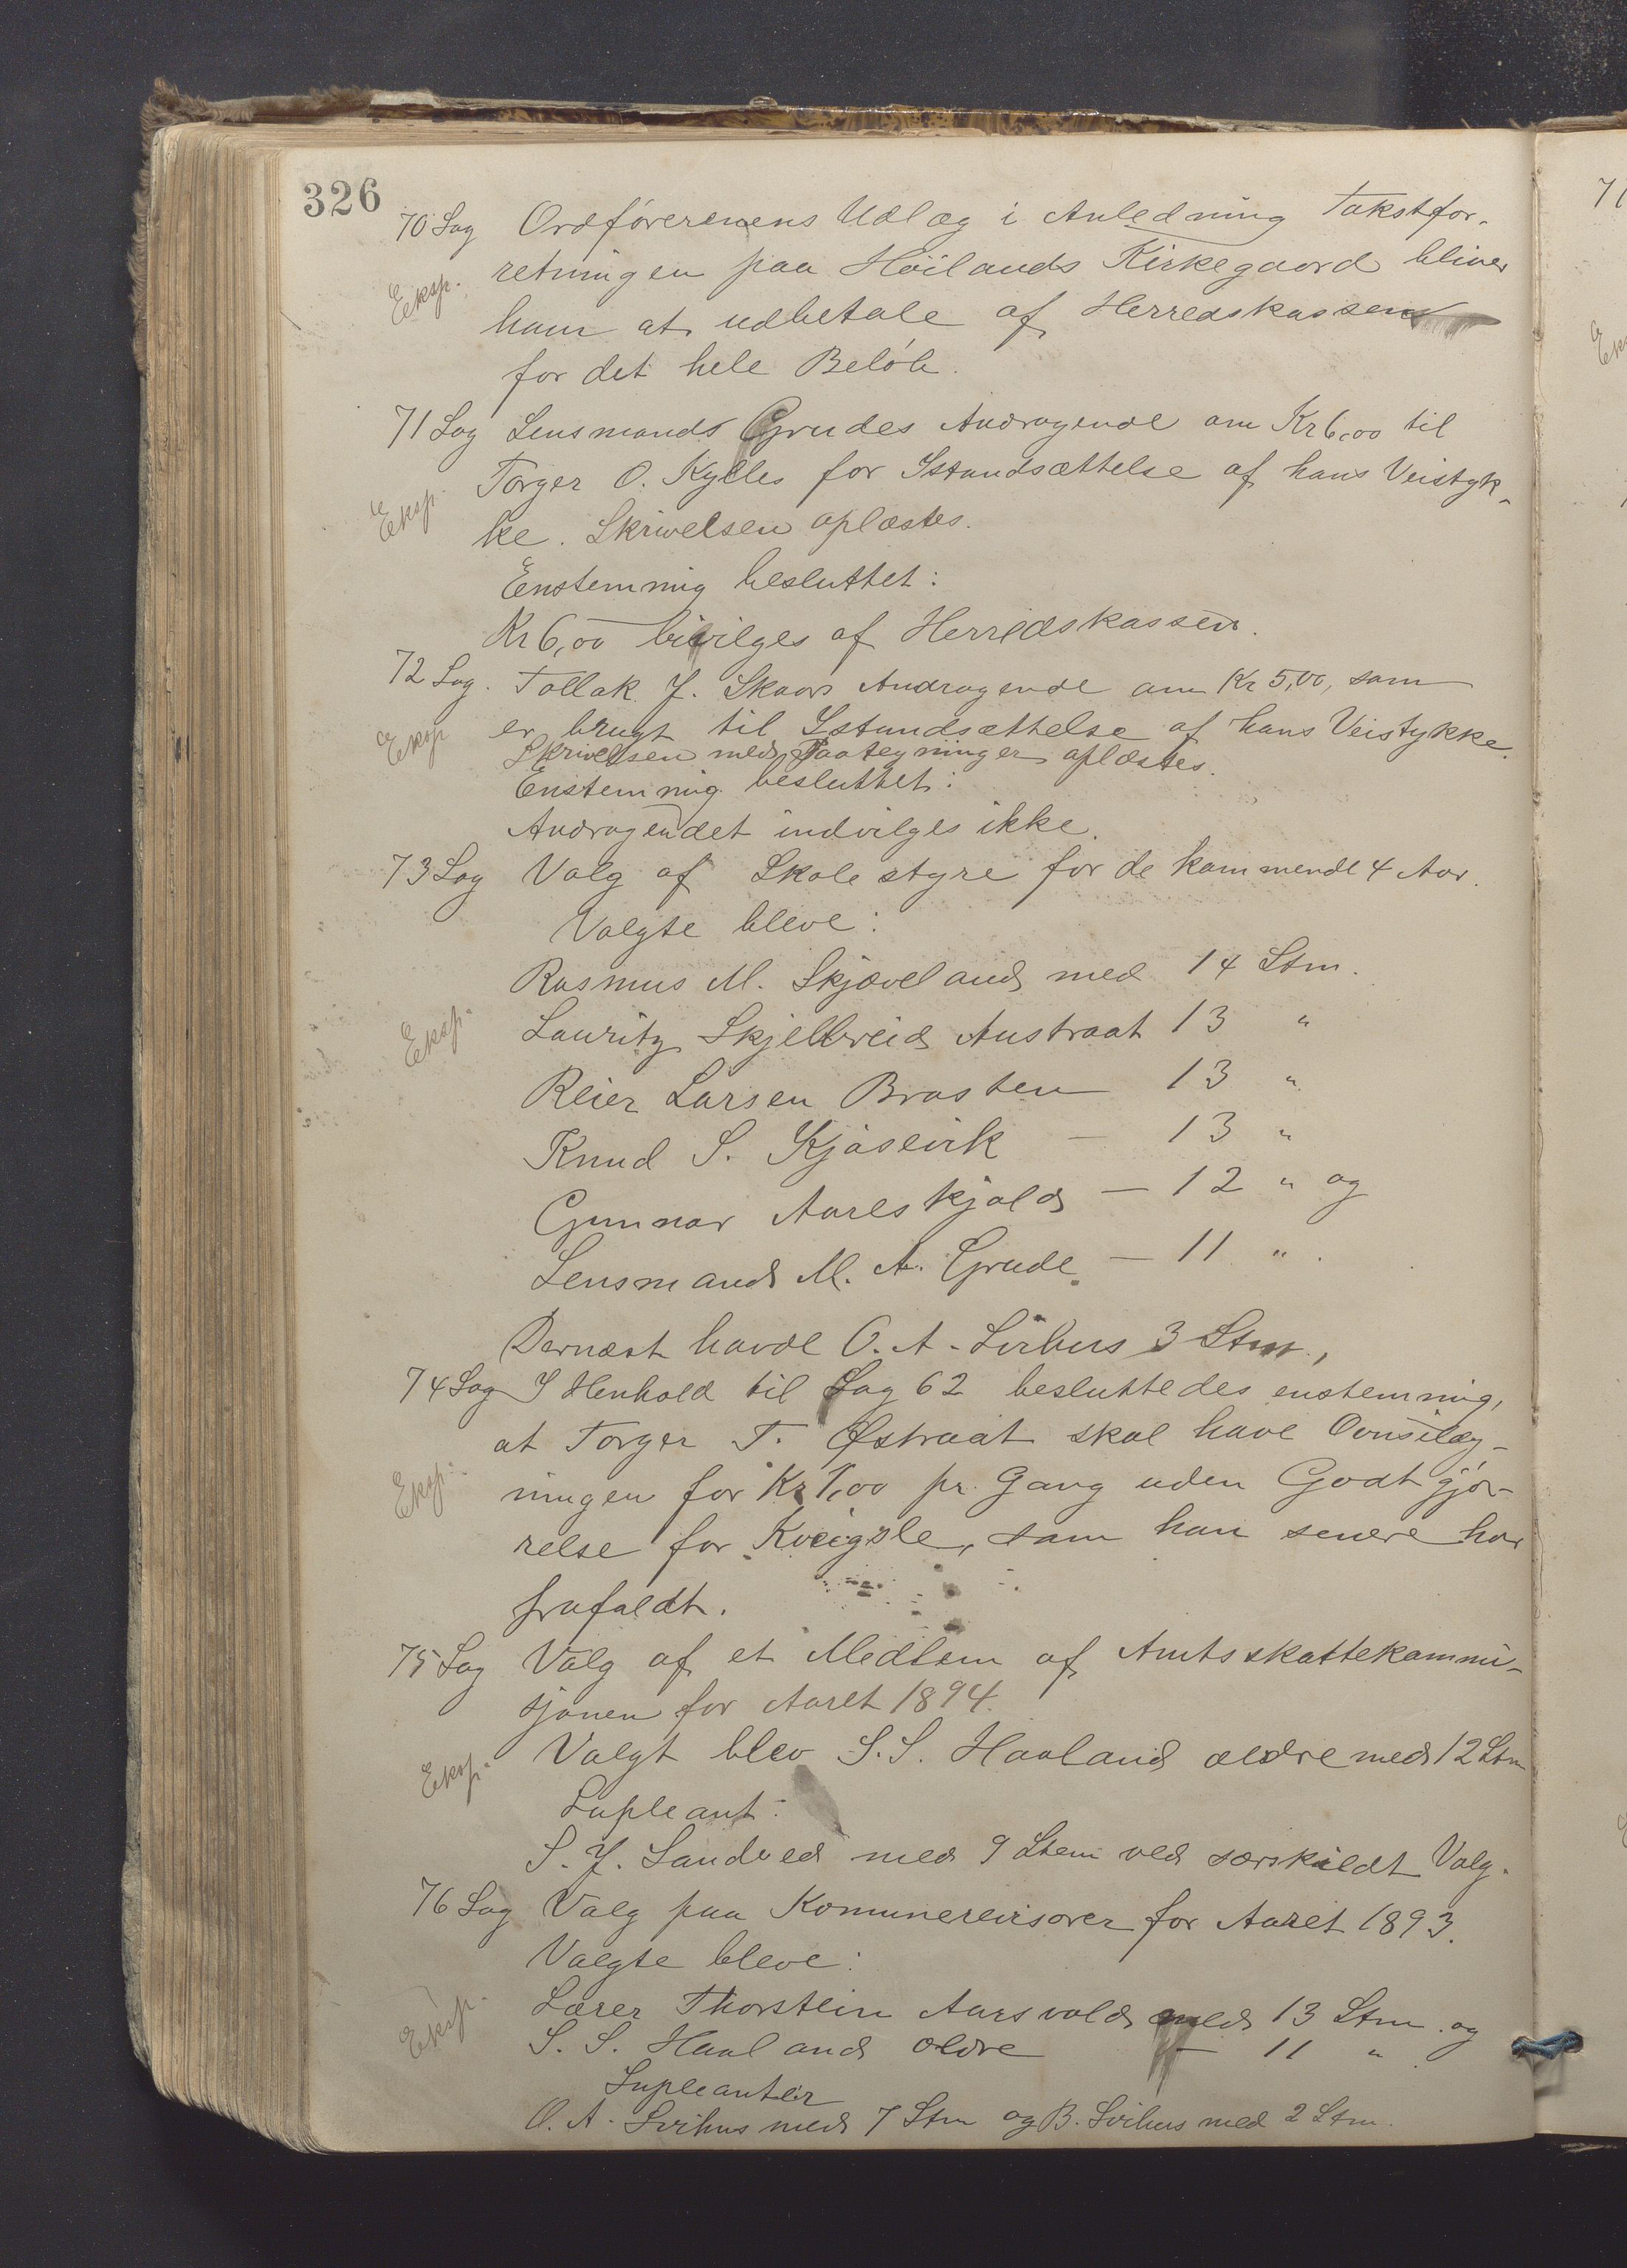 326
70 Sag Ordførerenens Udlæg i Anledning Takstfor-
Eksp. retningen paa Höilands Kirkegaard bliver
ham at udbetale af Herredskassen
for det hele Beløb.
71 Sag Lensmands Grudes Andragende om Kr 6,00 til
Torger O. Kylles for Istandsættelse af hans Veistyk-
Eksp. ke. Skrivelsen oplæstes.
Enstemmig besluttet:
Kr 6,00 bivilges af Herredskassen.
72 Sag. Tollak J. Skaars Andragende om Kr 5,00, som
Eksp er brugt til Istandsættelse af hans Veistykke.
Skrivelsen med Paategninger oplæstes.
Enstemmig besluttet:
Andragendet indvilges ikke.
73 Sag Valg af Skolestyre for de kommende 4 Aar.
Valgte bleve:
Rasmus M. Skjæveland med 14 Stm.
Eksp. Lauritz Skjelbreid Austraat 13 "
Reier Larsen Brasten 13 "
Knud S. Kjosevik — 13 "
Gunnar Aareskjold — 12 " og
Lensmand M. A. Grude — 11 ".
Dernæst havde O. A. Svihus 3 Stm.,
74 Sag I Henhold til Sag 62 besluttedes enstemmig,
at Torger T. Østraat skal have Ovnsilæg-
Eksp. ningen for Kr 1,00 pr. Gang uden Godtgjö-
relse for Kveigsle, som han senere har
frafaldt.
75 Sag Valg af et Medlem af Amtsskattekommi-
sjonen for Aaret 1894.
Eksp. Valgt blev S. S. Haaland ældre med 12 Stm
Supleant:
S. J. Sandved med 9 Stem ved særskildt Valg.
76 Sag Valg paa Komunerevisorer for Aaret 1893.
Valgte bleve:
Eksp. Lærer Thorstein Aarsvold med 13 Stm. og
S. S. Haaland ældre — 11 ".
Supleanter
O. A. Svihus med 7 Stm og B. Svihus med 2 Stm.
71